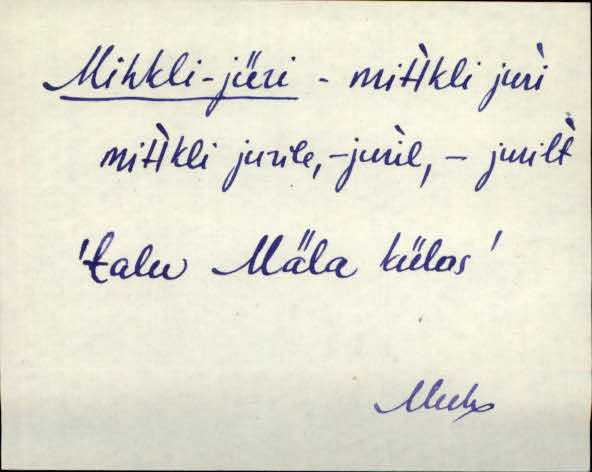 Mihkli-jüri - miHkli juri
miHkli jurile, -juril, - jurilt
'talu Mäla külas'
Muh